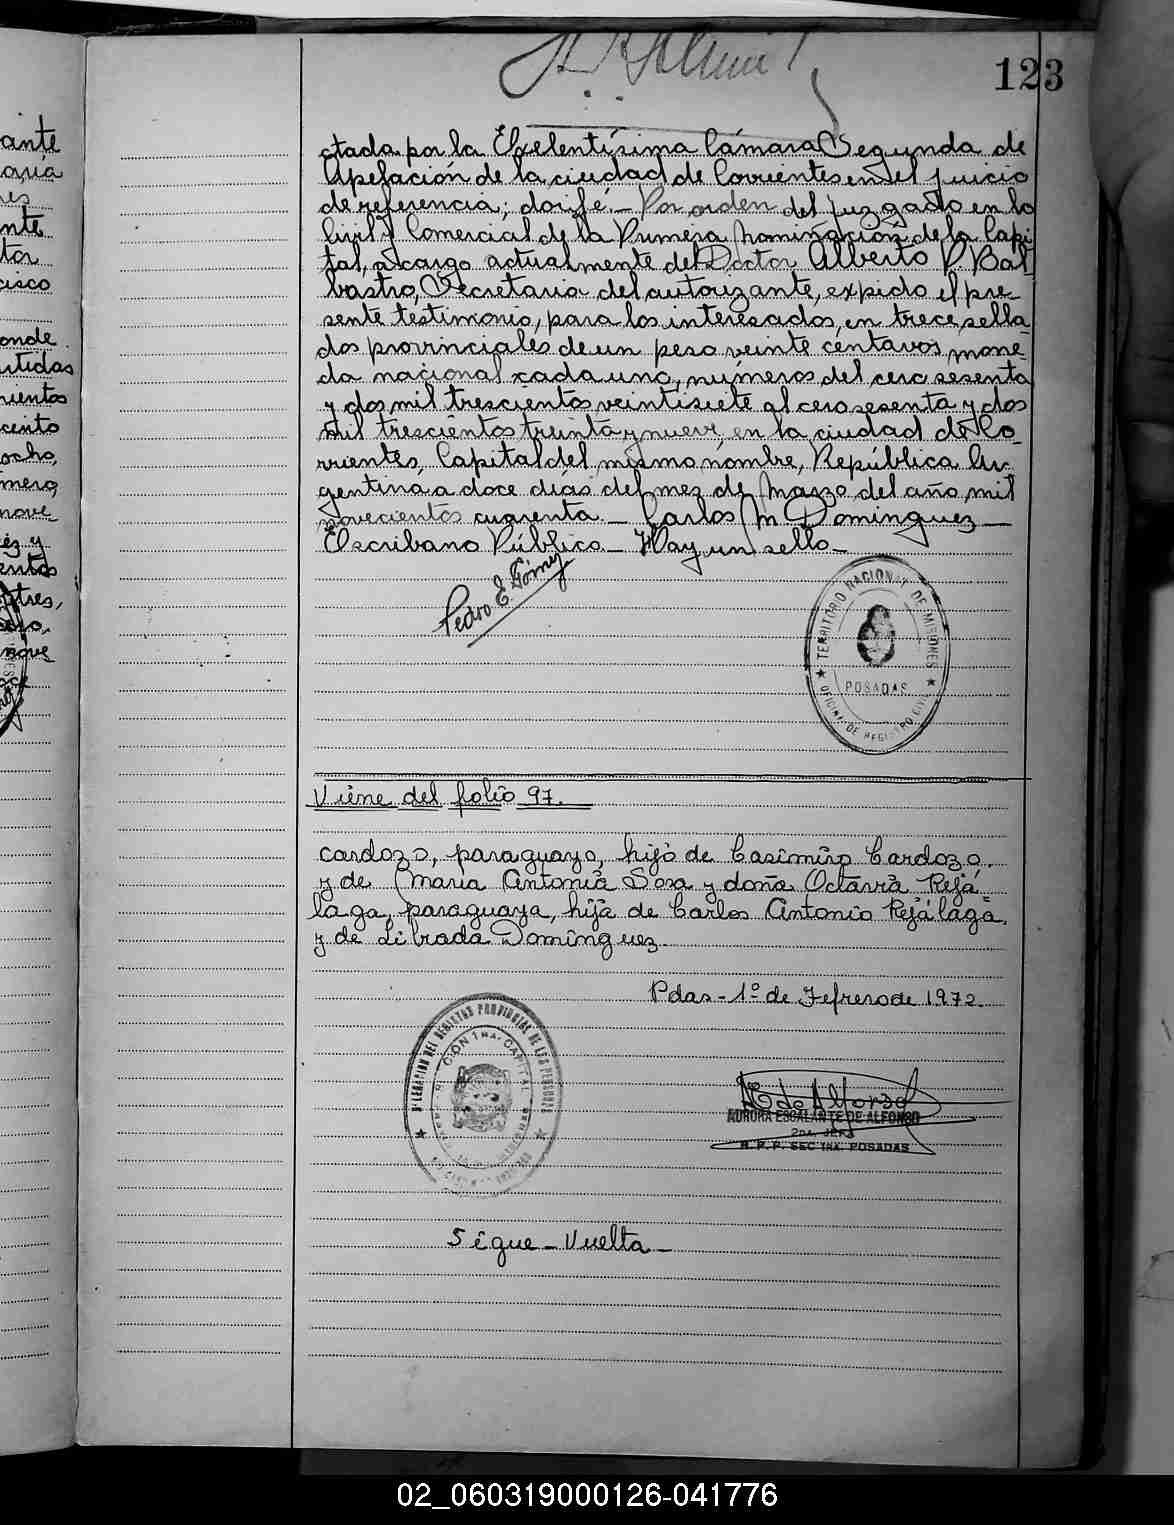 123
ctada por la Exelentísima Cámara Segunda de
Apelación de la ciudad de Corrientes en el juicio
de referencia; doy fé.- Por orden del juzgado en lo
Civil y Comercial de la Primera Nominación de la Capi
tal, a cargo actualmente del Doctor Alberto P. Bal
bastro, Secretaria del autorizante, expido el pre-
sente testimonio, para los interesados, en trece sella-
dos provinciales de un peso veinte centavos mone-
da nacional cada uno, números del cero sesenta
y dos mil trescientos veintisiete al cero sesenta y dos
mil trescientos treinta y nueve, en la ciudad de Co-
rrientes, Capital del mismo nombre, República Ar-
gentina a doce días del mez de Marzo del año mil
novecientos cuarenta.- Carlos M Dominguez-
Escribano Público- Hay un sello-
Pedro E. Gómez
TERRITORIO NACIONAL DE MISIONES
POSADAS
OFICINA DE REGISTRO CIVIL
Viene del folio 97.
cardozo, paraguayo, hijo de Casimiro Cardozo.
y de Maria Antonia Sosa y doña Octavia Rejá
laga, paraguaya, hija de Carlos Antonio Rejálaga
y de Librada Dominguez.
Pdas - 1º de Febrero de 1972.
DELEGACION DEL REGISTRO PROVINCIAL DE LAS PERSONAS
E. de Alfonso
AURORA ESCALANTE DE ALFONSO
2da. JEFA
R. P. P. SEC 1RA. POSADAS
Sigue - Vuelta -
ante
nte
tor
cisco
onde
rtidas
cento
ocho,
mero,
nove
ez y
entos
tres,
nove
02_060319000126-041776